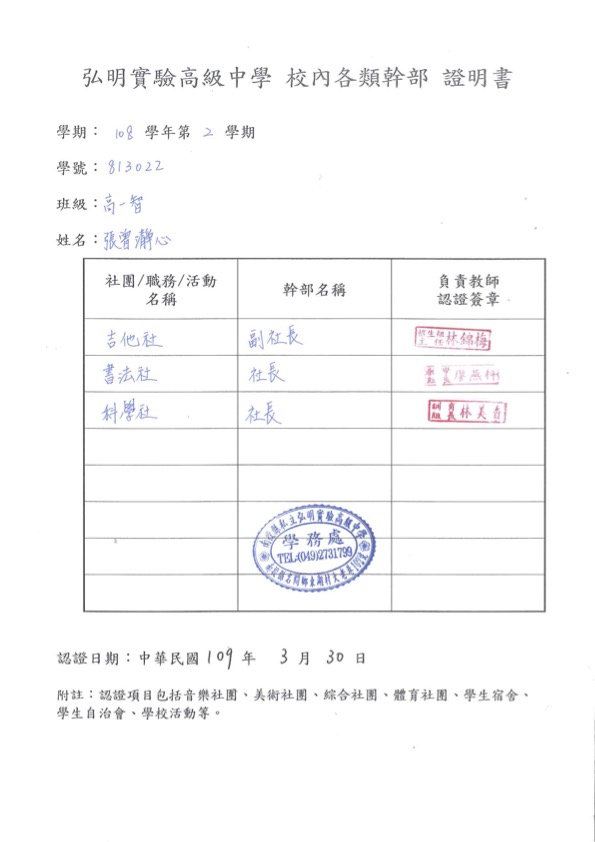 弘明實驗高級中學 校內各類幹部 證明書
學期： 108 學年第 2 學期
學號：813022
班級：高一智
姓名：張曾瀞心
社團/職務/活動
名稱
幹部名稱
負責教師
認證簽章
吉他社 副社長 林錦梅
書法社 社長
科學社 社長 林美香
南投縣私立弘明實驗高級中學
學務處
TEL:(049)2731799
認證日期：中華民國 109 年 3 月 30 日
附註：認證項目包括音樂社團、美術社團、綜合社團、體育社團、學生宿舍、
學生自治會、學校活動等。